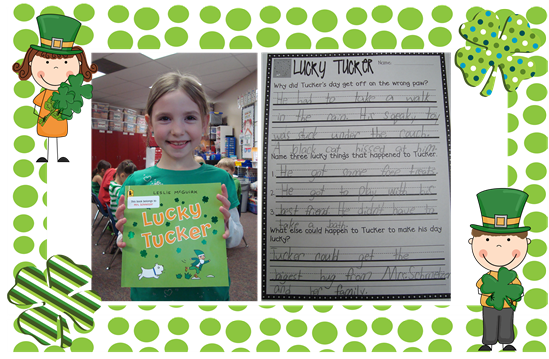 LESLIE McGUIRK
LUCKY
TUCKER
LUCKY TUCKER Name
Why did Tucker's day get off on the wrong paw?
He had to take a walk
in the rain. His sqeaky toy
was stuck under the couch.
A black cat hissed at him.
Name three lucky things that happened to Tucker.
1. He got some free treats.
2. He got to play with his
3. best friend. He didn't have to
take a bath.
What else could happen to Tucker to make his day
lucky?
Tucker could get the
biggest hug from Mrs.
and her family.